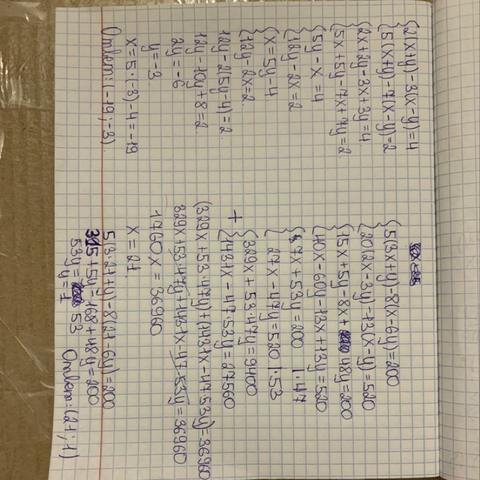 {2(x+y)-3(x-y)=4
{5(x+y)-7(x-y)=2
{2+2y-3x+3y=4
{5x+5y-7x+7y=2
{5y-x=4
{12y-2x=2
{x=5y-4
{12y-2x=2
12y-2(5y-4)=2
12y-10y+8=2
2y=-6
y=-3
x=5·(-3)-4=-19
Ответ: (-19;-3)
{5(3x+y)-8(x-6y)=200
{20(2x-3y)-13(x-y)=520
{15x+5y-8x+48y=200
{40x-60y-13x+13y=520
{7x+53y=200 |·47
{27x-47y=520 |·53
+ {329x+53·47y=9400
{1431x-47·53y=27560
(329x+53·47y)+(1431x-47·53y)=36960
329x+53·47y+1431x-47·53y=36960
1760x=36960
x=21
5(3·21+y)-8(21-6y)=200
315+5y-168+48y=200
53y=53
y=1
Ответ: (21;1)